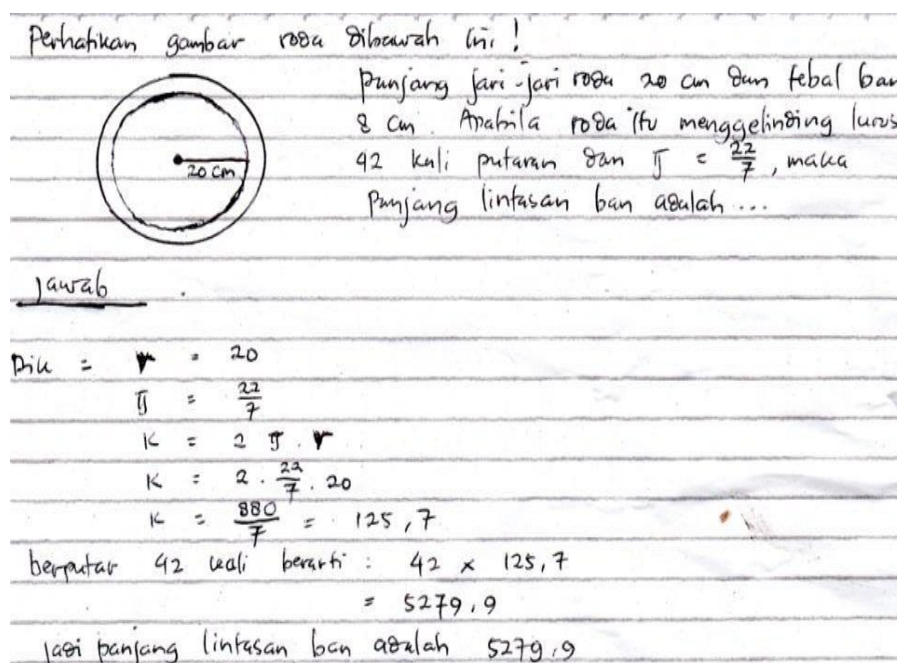 Perhatikan gambar roda dibawah ini !
20 cm
Panjang jari-jari roda 20 cm dan tebal ban
8 cm. Apabila roda itu menggelinding lurus
42 kali putaran dan π = 22/7, maka
panjang lintasan ban adalah ...
Jawab
Dik = r = 20
π = 22/7
K = 2 π . r
K = 2 . 22/7 . 20
K = 880/7 = 125,7
berputar 42 kali berarti : 42 x 125,7
= 5279,9
Jadi panjang lintasan ban adalah 5279,9